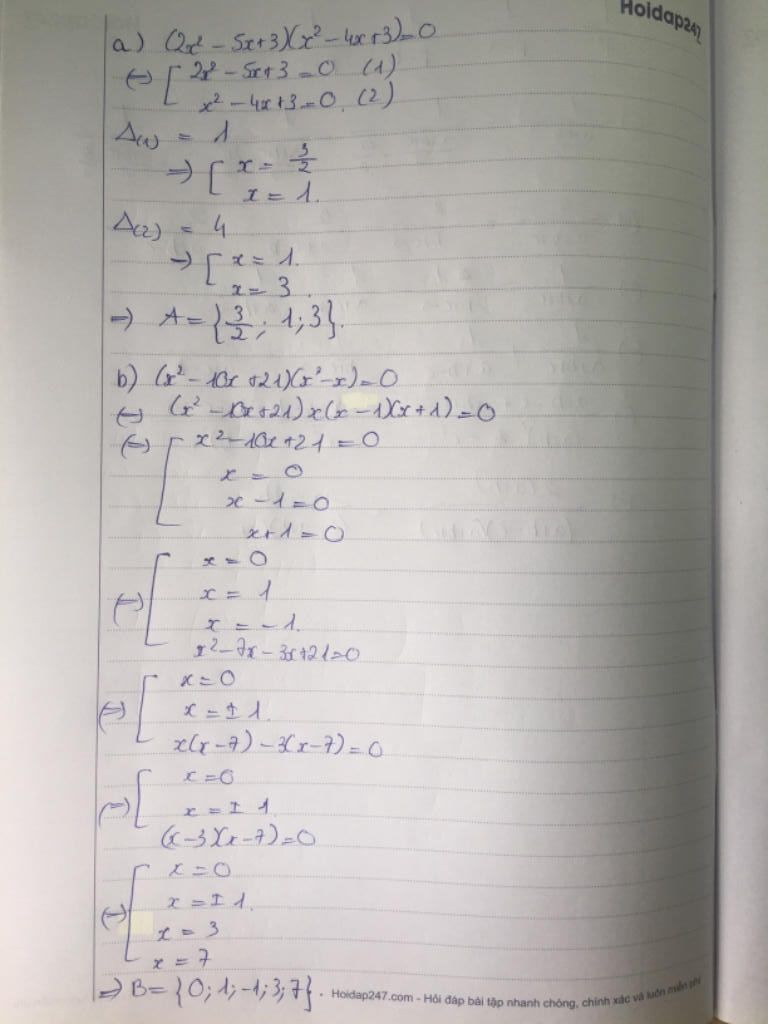 Hoidap247
a) (2x² – 5x+3)(x² – 4x+3)=0
(=) [ 2x² – 5x+3 = 0 (1)
x² – 4x+3=0. (2)
Δ(1) = 1
=) [ x = 3/2
x = 1.
Δ(2) = 4
=) [ x = 1.
x = 3.
=) A = {3/2; 1; 3}.
b) (x² – 10x + 21)(x³ – x) = 0
(=) (x² – 10x+21) x(x – 1)(x+1) = 0
(=) [ x² – 10x+21 = 0
x = 0
x – 1 = 0
x+1 = 0
(=) [ x = 0
x = 1
x = – 1.
x² – 7x – 3x+21=0
(=) [ x = 0
x = ± 1.
x(x – 7) – 3(x – 7) = 0
(=) [ x = 0
x = ± 1
(x – 3)(x – 7) = 0
(=) [ x = 0
x = ± 1.
x = 3
x = 7
=) B = {0; 1; -1; 3; 7}. Hoidap247.com - Hỏi đáp bài tập nhanh chóng, chính xác và luôn miễn phí